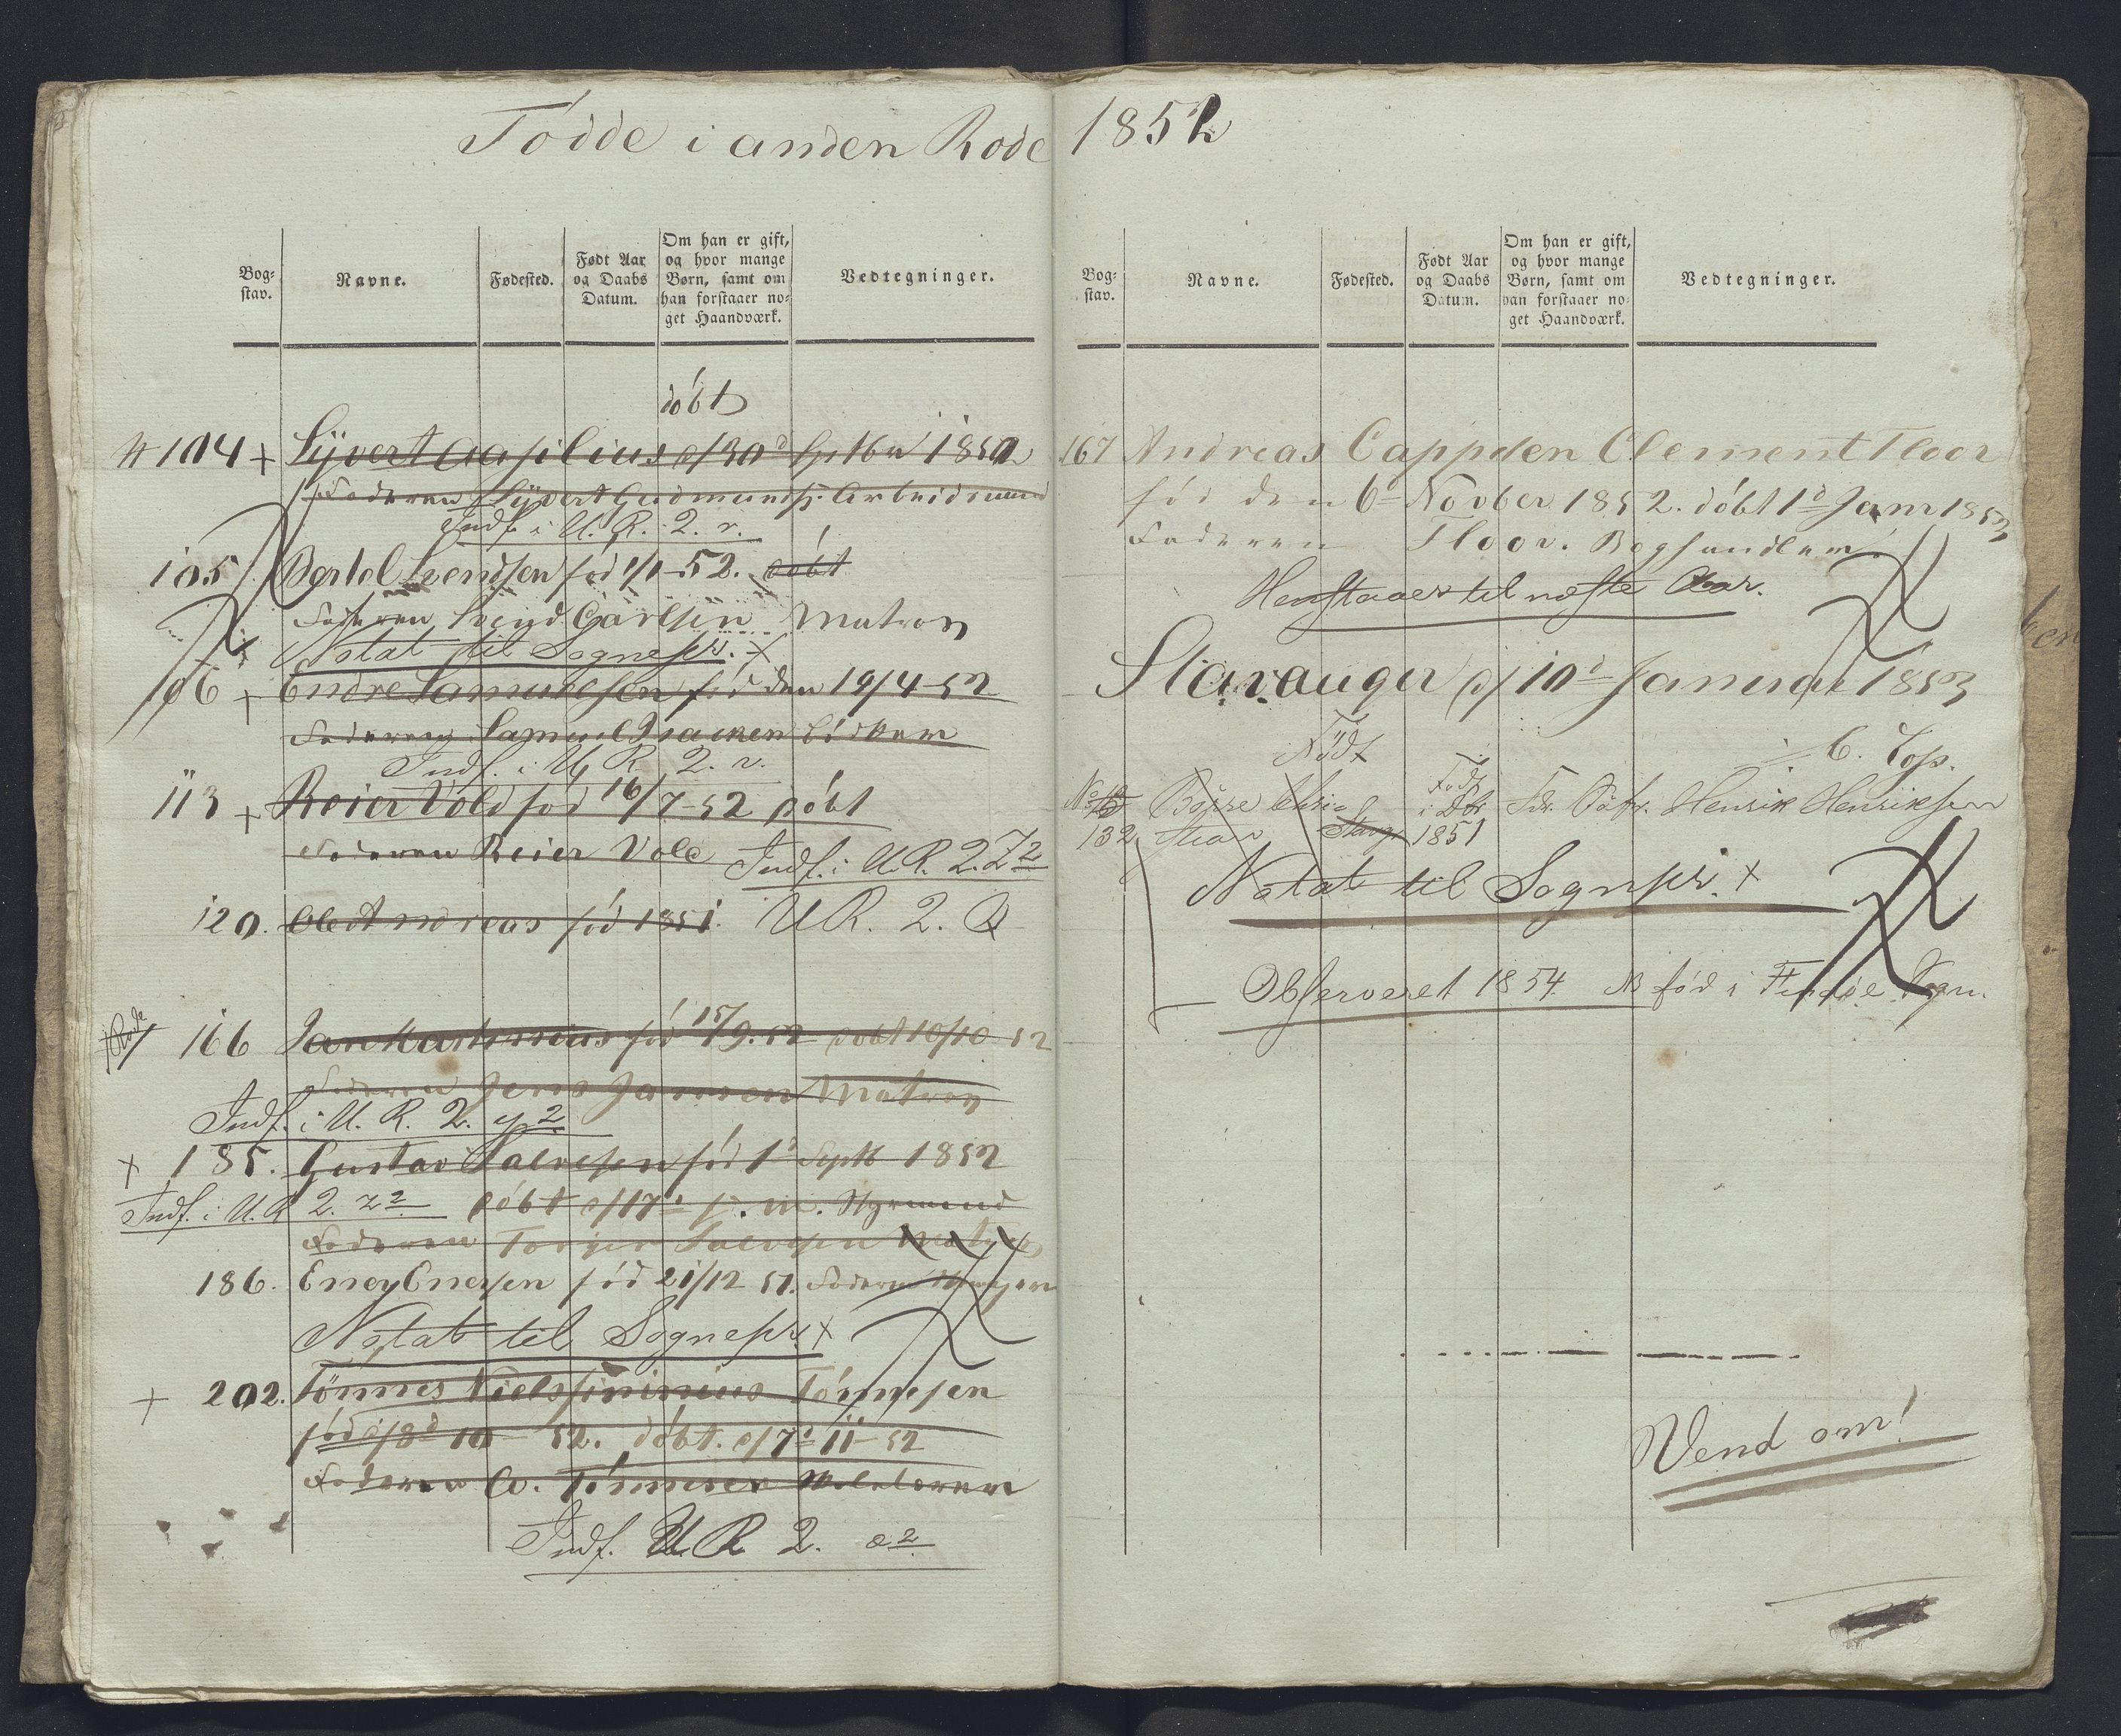 Fødde i anden Rode 1852
Bog=
stav.
Navne.
Fødested.
Født Aar
og Daabs
Datum.
Om han er gift,
og hvor mange
Børn, samt om
han forstaaer no=
get Haandværk.
Vedtegninger.
døbt
104 + Syvert
Faderen Syvert Gudmunds. Arbeidsmand
Indf. i U. R. 2. r.
105 Bertel Svendsen fød 1/1-52. døbt
Faderen Svend Matros
Notat til Sognepr. +
106 + Endre Samuelsen fød den 19/4-52
Faderen Samuel Isacsen Bødker
Indf. i U R 2. v.
113 + Reier Vold fød 16/7-52 døbt
Faderen Reier Vold Indf. i U. R. 2. Z 2
120. Ole Andreas fød 1851. U R. 2. Q
166 Jan fød 15/9. 52 døbt 10/10 52
Faderen Jens Jansen Matros
Indf. i U. R. 2. y 2
+ 185. Gustav Salvesen fød 1d Septb 1852
Indf. i U. R 2. z 2 døbt d/17d s. m. Styrmand
Faderen Torger Salvesen
186. Eney Enersen fød 21/12 51. Faderen
Notat til Sognepr. +
+ 202. Tönnes Tönnesen
fød d/8d 10 52. døbt. d/7d 11-52
Faderen Tönnesen
Indf. U. R 2. a 2
Bog=
stav.
Navne.
Fødested.
Født Aar
og Daabs
Datum.
Om han er gift,
og hvor mange
Børn, samt om
han forstaaer no=
get Haandværk.
Vedtegninger.
167 Andreas Cappelen Clement Floor
fød den 6 Novber 1852. døbt 1d Janr 1853
Faderen Floor. Boghandler.
Henstaaer til næste Aar.
Stavanger d/10d Januar 1853
Født
C. Cops.
132 Fød i 1851 Henrik Henriksen
Notat til Sognepr. +
Observeret 1854. NB fød i Sogn.
Vend om!